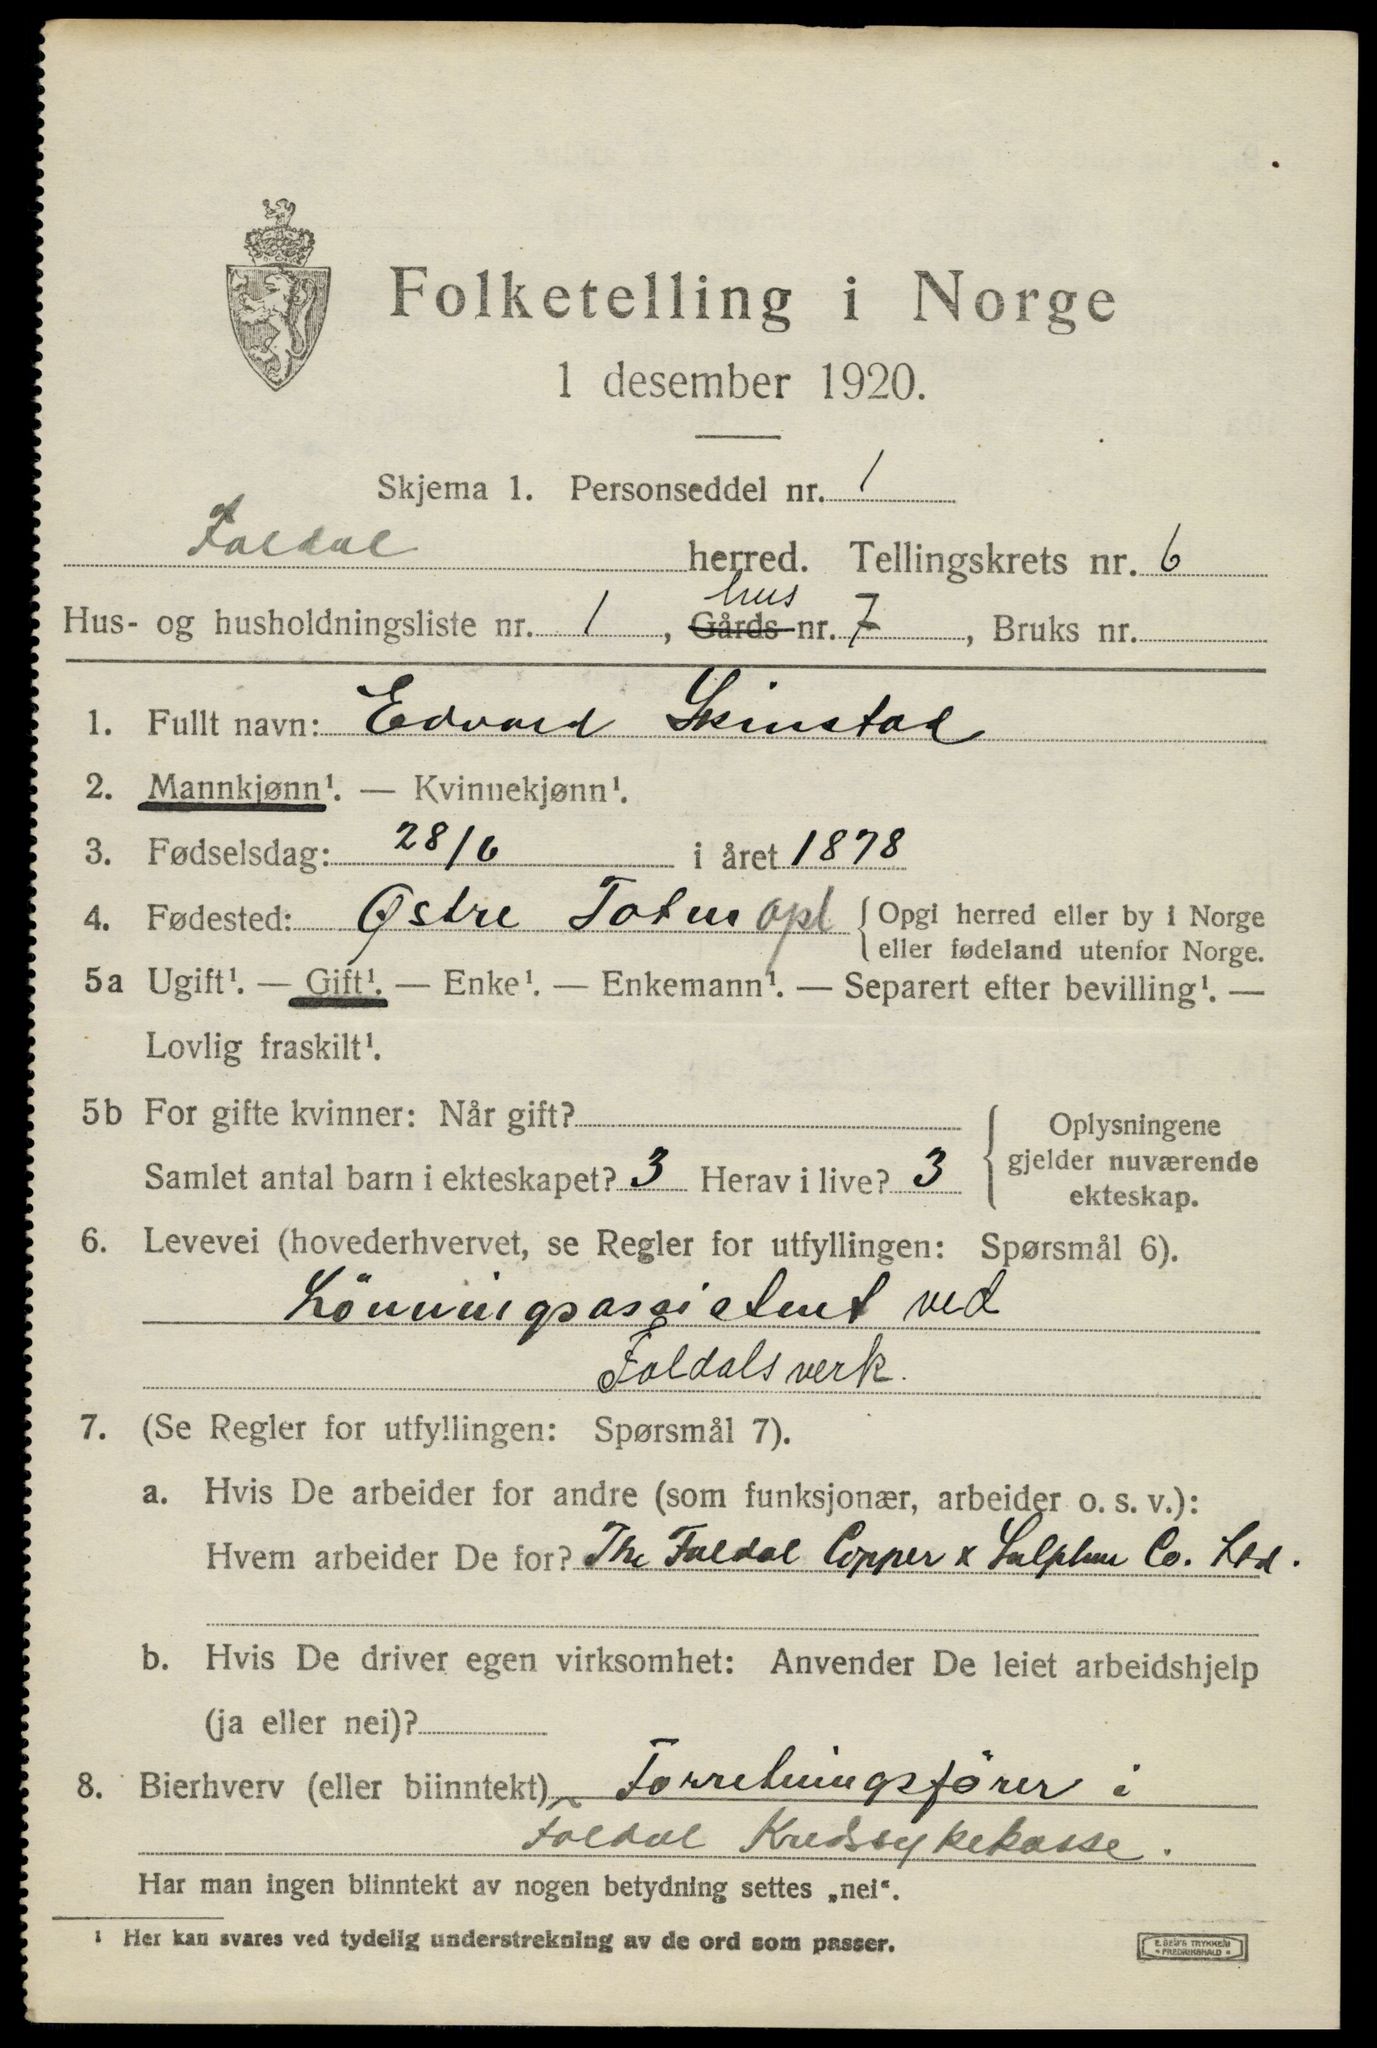 Folketelling i Norge
1 desember 1920.
Skjema 1. Personseddel nr. 1
Foldal herred. Tellingskrets nr. 6
hus
Hus- og husholdningsliste nr. 1, Gårds nr. 7, Bruks nr.
1. Fullt navn: Edvard Skinstad
2. Mannkjønn¹. — Kvinnekjønn¹.
3. Fødselsdag: 28/6 i året 1878
4. Fødested: Østre Toten opl { Opgi herred eller by i Norge
eller fødeland utenfor Norge.
5a Ugift¹. — Gift¹. — Enke¹. — Enkemann¹. — Separert efter bevilling¹. —
Lovlig fraskilt¹.
5b For gifte kvinner: Når gift?
Samlet antal barn i ekteskapet? 3 Herav i live? 3
Oplysningene
gjelder nuværende
ekteskap.
6. Levevei (hovederhvervet, se Regler for utfyllingen: Spørsmål 6).
Lönningsassistent ved
Foldalsverk.
7. (Se Regler for utfyllingen: Spørsmål 7).
a. Hvis De arbeider for andre (som funksjonær, arbeider o. s. v.):
Hvem arbeider De for? The Foldal Copper & Sulphur Co. Ltd.
b. Hvis De driver egen virksomhet: Anvender De leiet arbeidshjelp
(ja eller nei)?
8. Bierhverv (eller biinntekt) Forretningsförer i
Foldal Kredssykekasse.
Har man ingen biinntekt av nogen betydning settes „nei“.
¹ Her kan svares ved tydelig understrekning av de ord som passer.
E. SEM'S TRYKKERI
FREDRIKSHALD